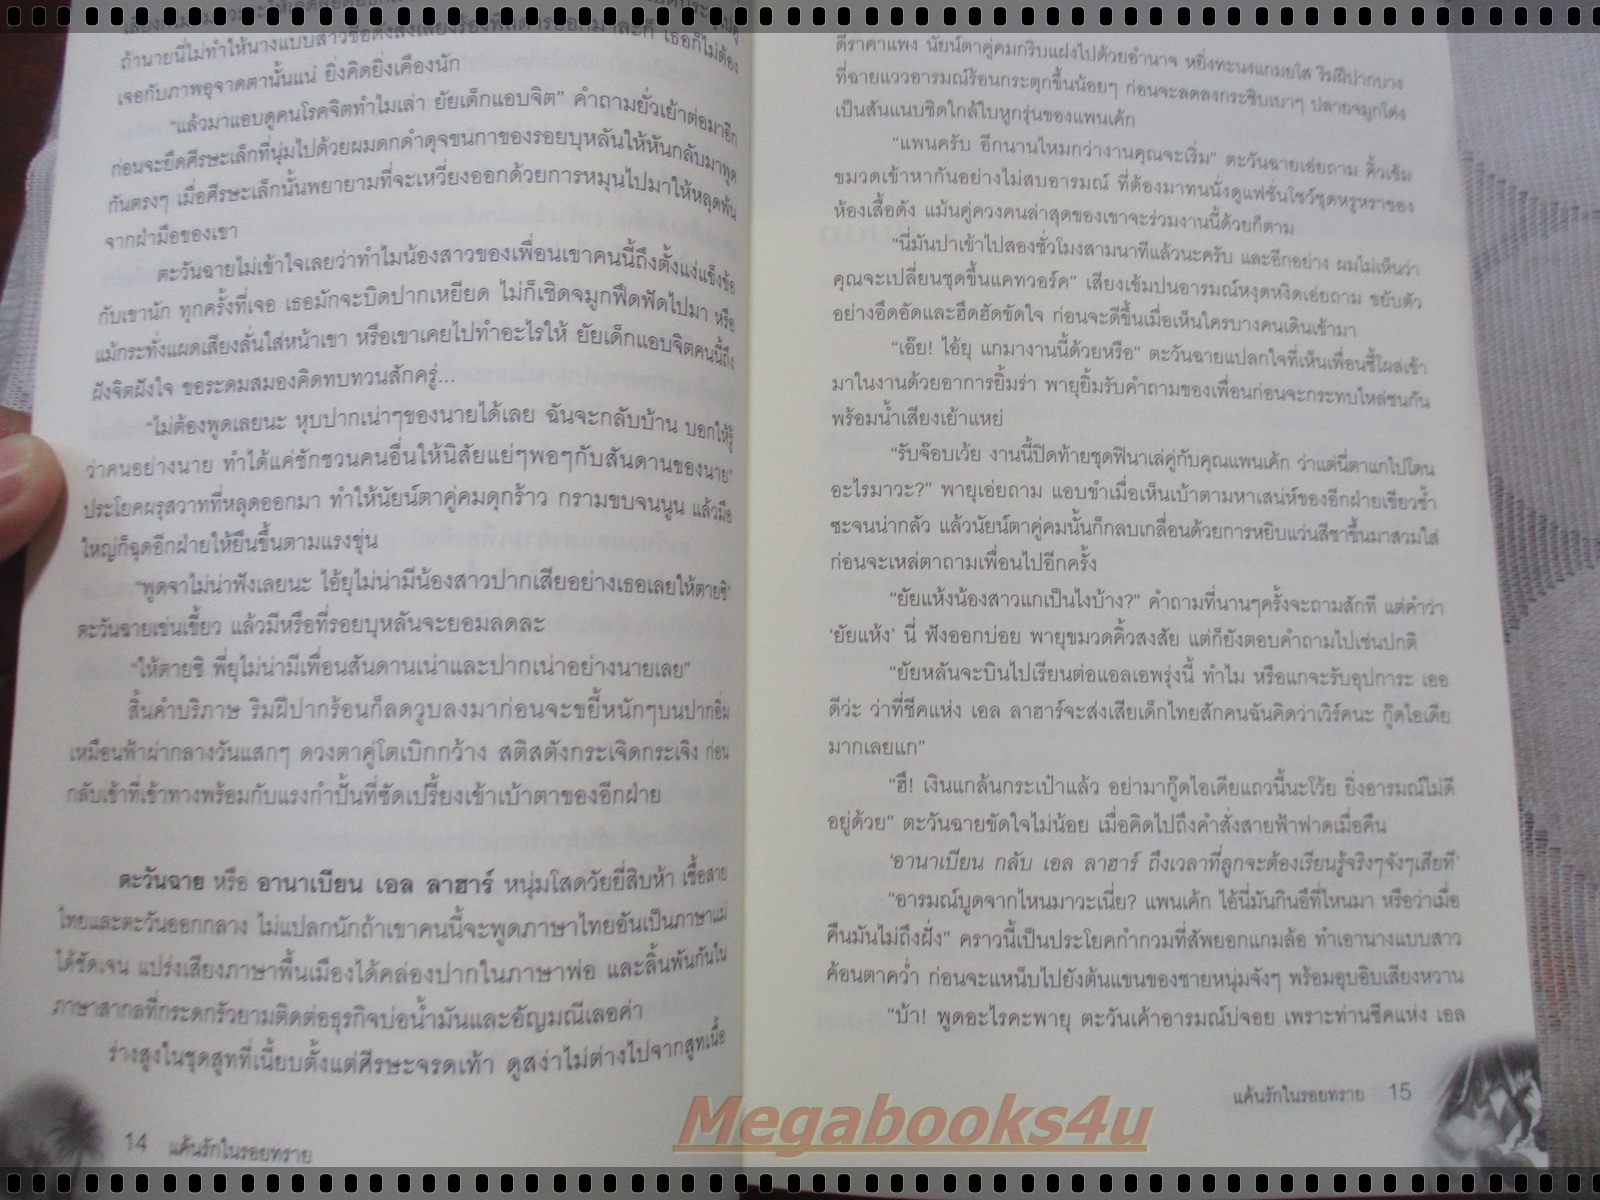 ถ้านายนี่ไม่ทำให้นางแบบสาวชื่อดังส่งเสียงร้องพิสดารออกมาละก็ เธอก็ไม่ต้อง
เจอกับภาพอุจาดตานั้นแน่ ยิ่งคิดยิ่งเคืองนัก
“แล้วมาแอบดูคนโรคจิตทำไมเล่า ยัยเด็กแอบจิต” คำถามยั่วเย้าต่อมาอีก
ก่อนจะยึดศีรษะเล็กที่นุ่มไปด้วยผมดกดำดุจขนกาของรอยบุหลันให้หันกลับมาพูด
กันตรงๆ เมื่อศีรษะเล็กนั้นพยายามที่จะเหวี่ยงออกด้วยการหมุนไปมาให้หลุดพ้น
จากฝ่ามือของเขา
ตะวันฉายไม่เข้าใจเลยว่าทำไมน้องสาวของเพื่อนเขาคนนี้ถึงตั้งแง่แข็งข้อ
กับเขานัก ทุกครั้งที่เจอ เธอมักจะบิดปากเหยียด ไม่ก็เชิดจมูกฟึดฟัดไปมา หรือ
แม้กระทั่งแผดเสียงลั่นใส่หน้าเขา หรือเขาเคยไปทำอะไรให้ ยัยเด็กแอบจิตคนนี้ถึง
ฝังจิตฝังใจ ขอระดมสมองคิดทบทวนสักครู่...
“ไม่ต้องพูดเลยนะ หุบปากเน่าๆของนายได้เลย ฉันจะกลับบ้าน บอกให้รู้
ว่าคนอย่างนาย ทำได้แค่ชักชวนคนอื่นให้นิสัยแย่ๆพอๆกับสันดานของนาย”
ประโยคผรุสวาทที่หลุดออกมา ทำให้นัยน์ตาคู่คมดุกร้าว กรามขบจนนูน แล้วมือ
ใหญ่ก็ฉุดอีกฝ่ายให้ยืนขึ้นตามแรงขุ่น
“พูดจาไม่น่าฟังเลยนะ ไอ้ยุไม่น่ามีน้องสาวปากเสียอย่างเธอเลยให้ตายซิ”
ตะวันฉายเข่นเขี้ยว แล้วมีหรือที่รอยบุหลันจะยอมลดละ
“ให้ตายซิ พี่ยุไม่น่ามีเพื่อนสันดานเน่าและปากเน่าอย่างนายเลย”
สิ้นคำบริภาษ ริมฝีปากร้อนก็ลดวูบลงมาก่อนจะขยี้หนักๆบนปากอิ่ม
เหมือนฟ้าผ่ากลางวันแสกๆ ดวงตาคู่โตเบิกกว้าง สติสตังกระเจิดกระเจิง ก่อน
กลับเข้าที่เข้าทางพร้อมกับแรงกำปั้นที่ซัดเปรี้ยงเข้าเบ้าตาของอีกฝ่าย
ตะวันฉาย หรือ อานาเบียน เอล ลาฮาร์ หนุ่มโสดวัยยี่สิบห้า เชื้อสาย
ไทยและตะวันออกกลาง ไม่แปลกนักถ้าเขาคนนี้จะพูดภาษาไทยอันเป็นภาษาแม่
ได้ชัดเจน แปร่งเสียงภาษาพื้นเมืองได้คล่องปากในภาษาพ่อ และลิ้นพันกันใน
ภาษาสากลที่กระดกรัวยามติดต่อธุรกิจบ่อน้ำมันและอัญมณีเลอค่า
ร่างสูงในชุดสูทที่เนี้ยบตั้งแต่ศีรษะจรดเท้า ดูสง่าไม่ต่างไปจากสูทเนื้อ
14 แค้นรักในรอยทราย
ดีราคาแพง นัยน์ตาคู่คมกริบแฝงไปด้วยอำนาจ หยิ่งทะนงแกมยโส ริมฝีปากบาง
ที่ฉายแววอารมณ์ร้อนกระตุกขึ้นน้อยๆ ก่อนจะลดลงกระซิบเบาๆ ปลายจมูกโด่ง
เป็นสันแนบชิดใกล้ใบหูกรุ่นของแพนเค้ก
“แพนครับ อีกนานไหมกว่างานคุณจะเริ่ม” ตะวันฉายเอ่ยถาม คิ้วเข้ม
ขมวดเข้าหากันอย่างไม่สบอารมณ์ ที่ต้องมาทนนั่งดูแฟชั่นโชว์ชุดหรูหราของ
ห้องเสื้อดัง แม้นคู่ควงคนล่าสุดของเขาจะร่วมงานนี้ด้วยก็ตาม
“นี่มันปาเข้าไปสองชั่วโมงสามนาทีแล้วนะครับ และอีกอย่าง ผมไม่เห็นว่า
คุณจะเปลี่ยนชุดขึ้นแคทวอร์ค” เสียงเข้มปนอารมณ์หงุดหงิดเอ่ยถาม ขยับตัว
อย่างอึดอัดและฮึดฮัดขัดใจ ก่อนจะดีขึ้นเมื่อเห็นใครบางคนเดินเข้ามา
“เอ๊ย! ไอ้ยุ แกมางานนี้ด้วยหรือ” ตะวันฉายแปลกใจที่เห็นเพื่อนซี้โผล่เข้า
มาในงานด้วยอาการยิ้มร่า พายุยิ้มรับคำถามของเพื่อนก่อนจะกระทบไหล่ชนกัน
พร้อมน้ำเสียงเย้าแหย่
“รับจ๊อบเว้ย งานนี้ปิดท้ายชุดฟินาเล่คู่กับคุณแพนเค้ก ว่าแต่นี่ตาแกไปโดน
อะไรมาวะ?” พายุเอ่ยถาม แอบขำเมื่อเห็นเบ้าตามหาเสน่ห์ของอีกฝ่ายเขียวช้ำ
ซะจนน่ากลัว แล้วนัยน์ตาคู่คมนั้นก็กลบเกลื่อนด้วยการหยิบแว่นสีชาขึ้นมาสวมใส่
ก่อนจะเหล่ตาถามเพื่อนไปอีกครั้ง
“ยัยแห้งน้องสาวแกเป็นไงบ้าง?” คำถามที่นานๆครั้งจะถามสักที แต่คำว่า
‘ยัยแห้ง’ นี่ ฟังออกบ่อย พายุขมวดคิ้วสงสัย แต่ก็ยังตอบคำถามไปเช่นปกติ
“ยัยหลันจะบินไปเรียนต่อแอลเอพรุ่งนี้ ทำไม หรือแกจะรับอุปการะ เออ
ดีว่ะ ว่าที่ชีคแห่ง เอล ลาฮาร์จะส่งเสียเด็กไทยสักคนฉันคิดว่าเวิร์คนะ กู๊ดไอเดีย
มากเลยแก”
“ฮึ! เงินแกล้นกระเป๋าแล้ว อย่ามากู๊ดไอเดียแถวนี้นะโว้ย ยิ่งอารมณ์ไม่ดี
อยู่ด้วย” ตะวันฉายขัดใจไม่น้อย เมื่อคิดไปถึงคำสั่งสายฟ้าฟาดเมื่อคืน
‘อานาเบียน กลับ เอล ลาฮาร์ ถึงเวลาที่ลูกจะต้องเรียนรู้จริงๆจังๆเสียที’
“อารมณ์บูดจากไหนมาวะเนี่ย? แพนเค้ก ไอ้นี่มันกินอึที่ไหนมา หรือว่าเมื่อ
คืนมันไม่ถึงฝั่ง” คราวนี้เป็นประโยคกำกวมที่สัพยอกแกมล้อ ทำเอานางแบบสาว
ค้อนตาคว่ำ ก่อนจะแหน็บไปยังต้นแขนของชายหนุ่มจังๆ พร้อมอุบอิบเสียงหวาน
“บ้า! พูดอะไรคะพายุ ตะวันเค้าอารมณ์บ่จอย เพราะท่านชีคแห่ง เอล
แค้นรักในรอยทราย 15
Megabooks4u